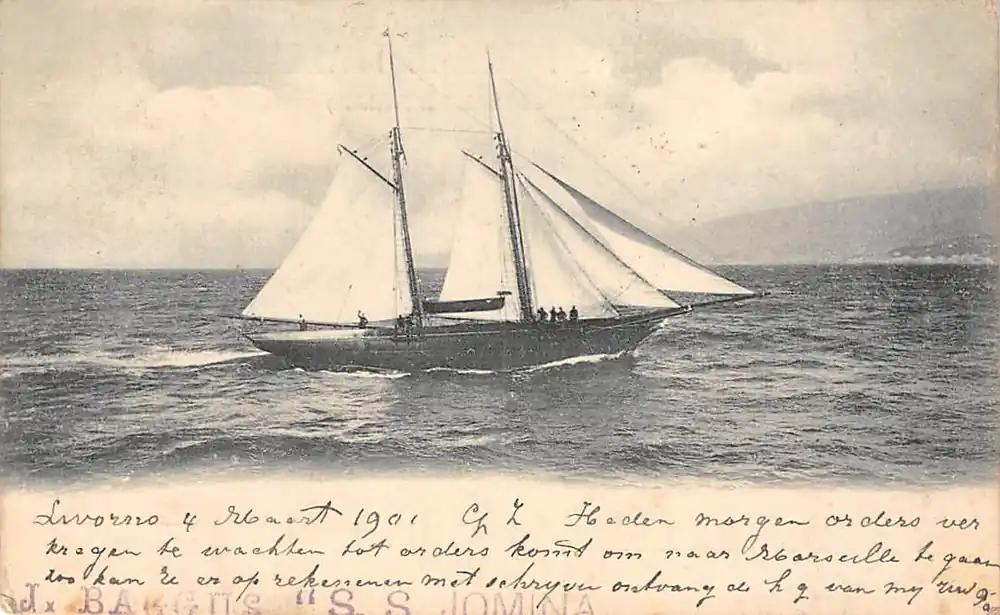 Livorno 4 Maart 1901 G Z Heden morgen orders ver
kregen te wachten tot orders komt om naar Marseille te gaan
zoo kan U er op rekenenen met schryven ontvang de h g van my
J. BAKGUS "S.S. JOMINA